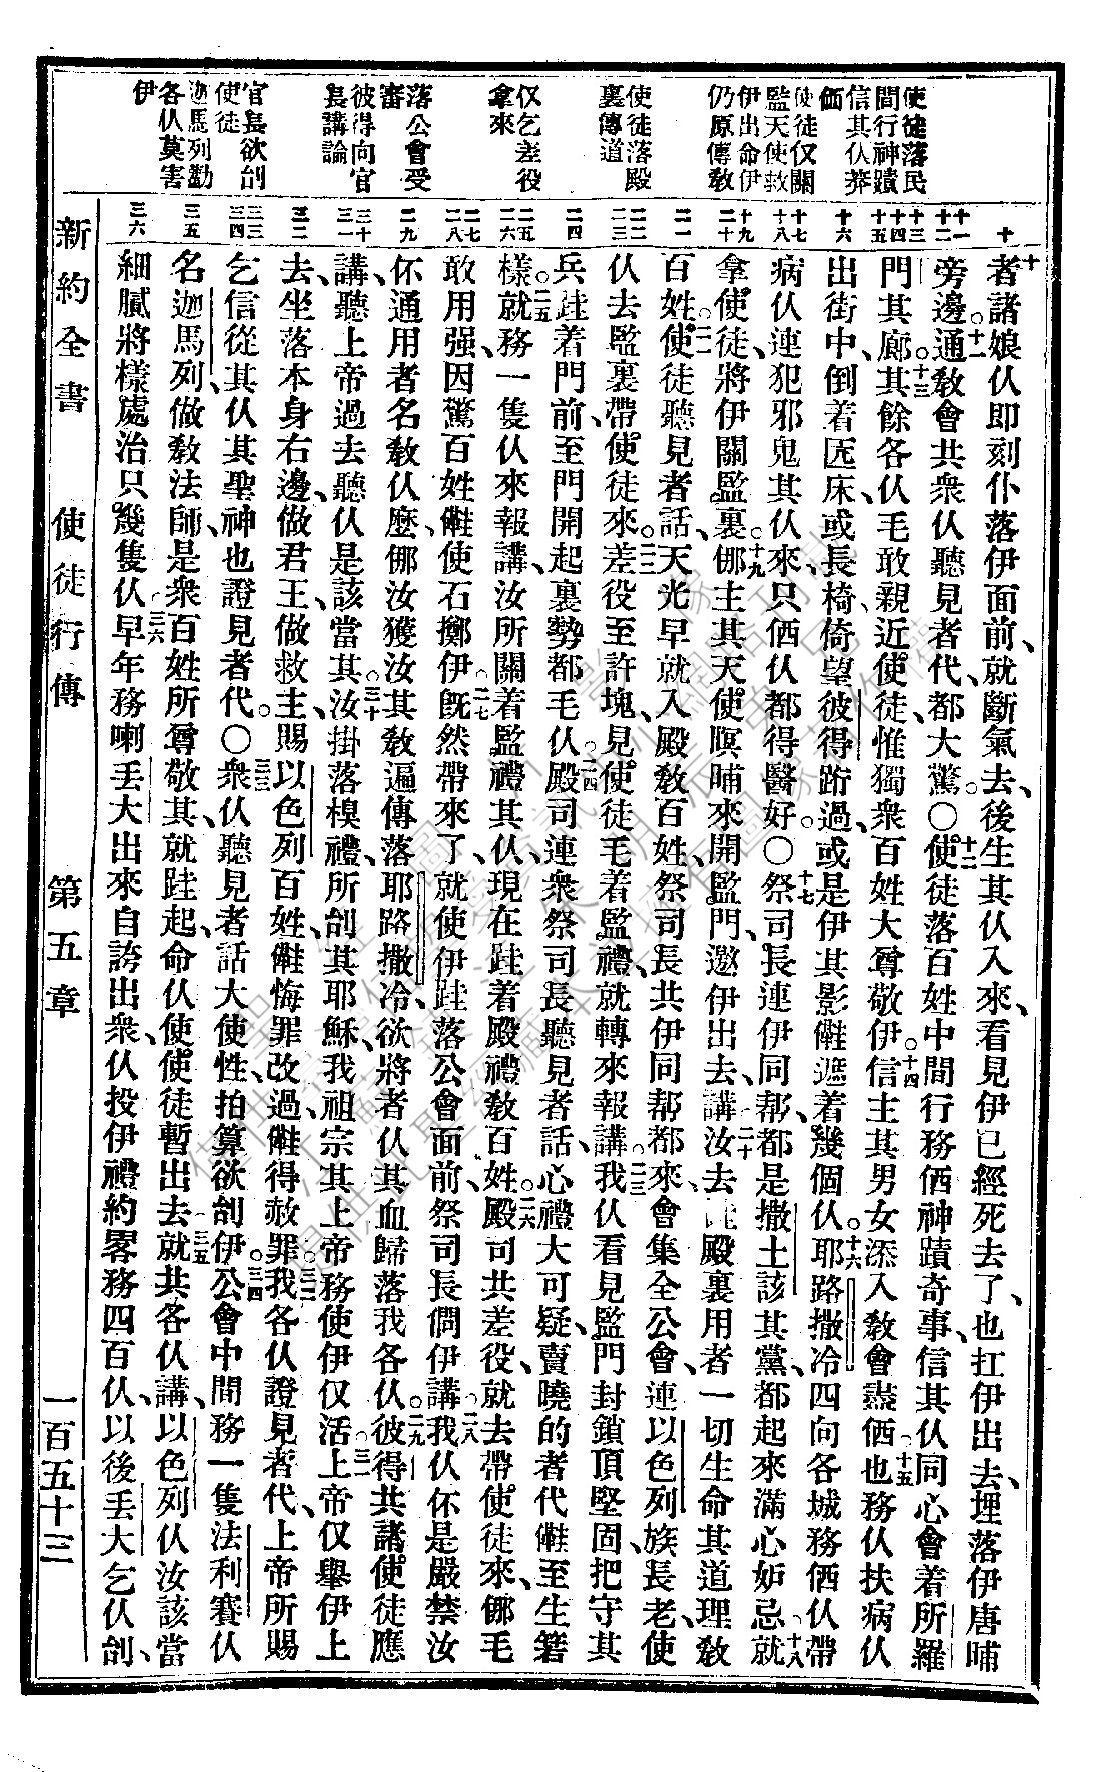 使徒落民
間行神蹟
信其仈莽
價
使徒仅關
監天使救
伊出命伊
仍原傳教
使徒落殿
裏傳道
仅乞差役
拿來
落公會受
審
彼得向官
長講論
官長欲刣
使徒
迦馬列勸
各仈莫害
伊
十
十一
十二
十三
十四
十五
十六
十七
十八
十九
二十
二一
二二
二三
二四
二五
二六
二七
二八
二九
三十
三一
三二
三三
三四
三五
三六
十者諸娘仈即刻仆落伊面前、就斷氣去、後生其仈入來、看見伊已經死去了、也扛伊出去、埋落伊唐晡
旁邊。十一通教會共衆仈聽見者代、都大驚。〇十二使徒落百姓中間行務𠲥神蹟奇事、信其仈同心會着所羅
門其廊。十三其餘各仈毛敢親近使徒、惟獨衆百姓大尊敬伊。十四信主其男女添入教會盡𠲥也務十五仈扶病仈
出街中、倒着匟床、或長椅倚望彼得跡過、或是伊其影㑚遮着幾個仈。十六耶路撒冷四向各城務𠲥仈帶
病仈連犯邪鬼其仈來、只𠲥仈都得醫好。〇十七祭司長連伊同帮都是撒土該其黨、都起來滿心妒忌、十八就
拿使徒、將伊關監裏。十九挪主其天使暝晡來開監門、邀伊出去講、二十汝去跬殿裏用者一切生命其道理教
百姓。二一使徒聽見者話、天光早就入殿教百姓、祭司長共伊同帮都來、會集全公會、連以色列族長老、使
仈去監裏帶使徒來。二二差役至許塊、見使徒毛着監禮、就轉來報講、二三我仈看見監門封鎖頂堅固、把守其
兵跬着門前、至門開起裏勢都毛仈。二四殿司連衆祭司長聽見者話、心禮大可疑、賣曉的者代㑚至生箬
樣。二五就務一隻仈來報講、汝所關着監禮其仈、現在跬着殿禮教百姓。二六殿司共差役就去帶使徒來、挪毛
敢用强、因驚百姓㑚使石擲伊。二七旣然帶來了、就使伊跬落公會面前、祭司長僩伊講、二八我仈伓是嚴禁汝
伓通用者名教仈麽、挪汝獲汝其教遍傳落耶路撒冷、欲將者仈其血歸落我各仈。二九彼得共諸使徒應
講、聽上帝過去聽仈是該當其。三十汝掛落模禮、所刣其耶穌、我祖宗其上帝務使伊仅活、三一上帝仅舉伊上
去、坐落本身右邊、做君王、做救主、賜以色列百姓㑚悔罪改過、㑚得赦罪。三二我各仈證見者代、上帝所賜
乞信從其仈其聖神也證見者代。〇三三衆仈聽見者話大使性、拍算欲刣伊。三四公會中間務一隻法利賽仈
名迦馬列、做教法師、是衆百姓所尊敬其、就跬起、命仈使使徒暫出去、三五就共各仈講、以色列仈汝該當
細膩將樣處治只幾隻仈。三六早年務喇丢大出來自誇出衆、仈投伊禮約畧務四百仈、以後丢大乞仈刣、
新約全書 使徒行傳 第五章 一百五十三